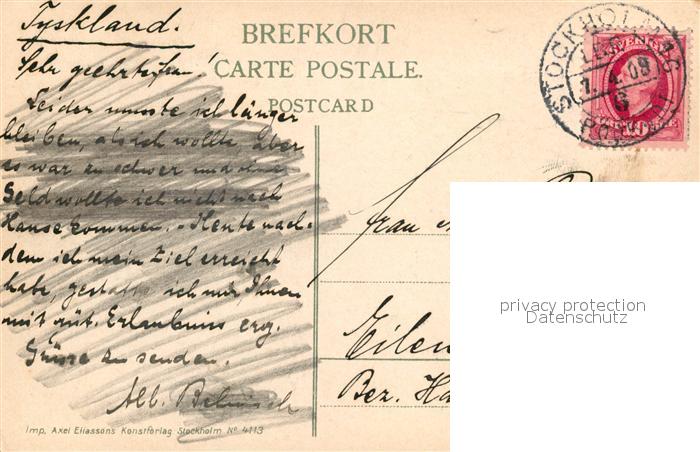 Tyskland.
BREFKORT
CARTE POSTALE.
POSTCARD
Sehr geehrte Frau!
Leider musste ich länger
bleiben, als ich wollte, aber
es war zu schwer und ohne
Geld wollte ich nicht nach
Hause kommen. - Heute nach-
dem ich mein Ziel erreicht
habe, gestatte ich mir, Ihnen
mit güt. Erlaubniss erg.
Grüsse zu senden.
Alb.
Imp. Axel Eliassons Konstförlag Stockholm Nº 4113
STOCKHOLM
1.4.09
Frau
Eilen
Bez. Ha
privacy protection
Datenschutz